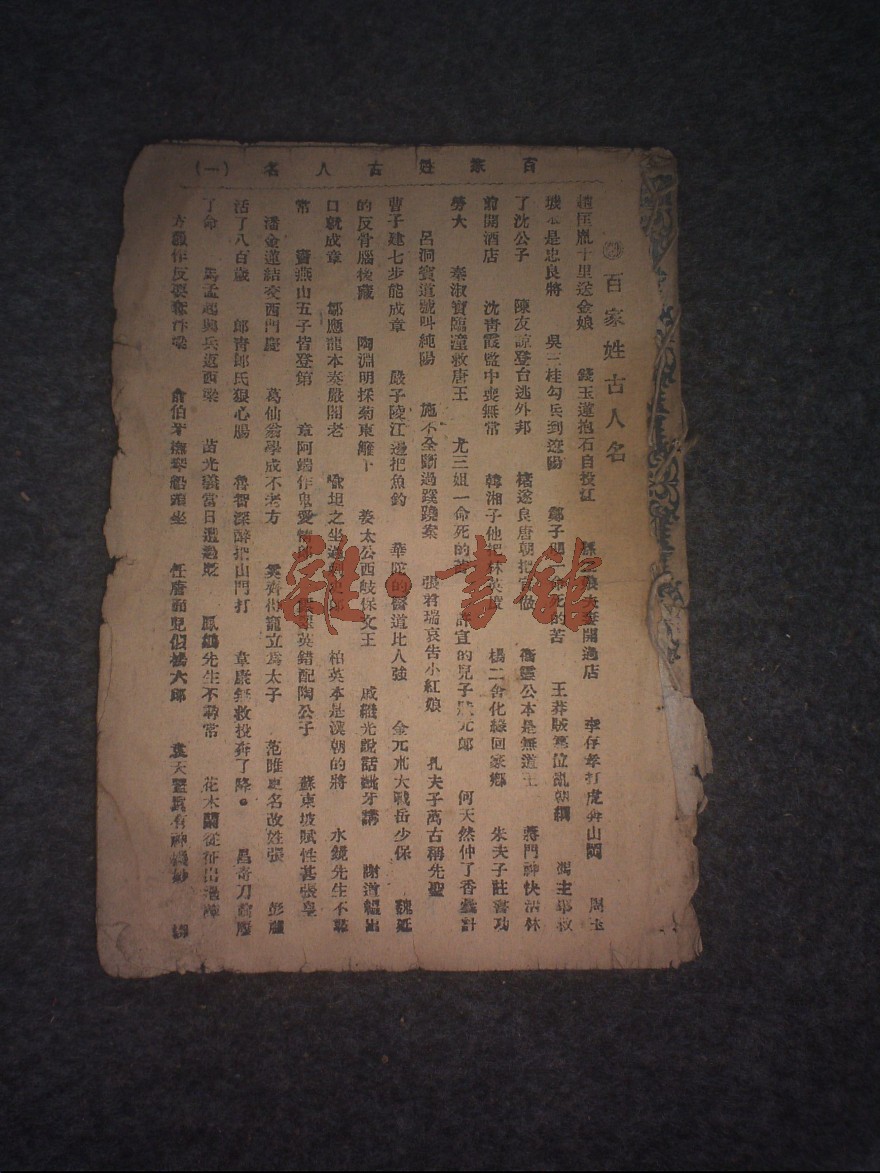 百家姓古人名（一）
百家姓古人名
趙匡胤十里送金娘 錢玉蓮抱石自投江 孫 娘 開過店 李存孝打虎奔山岡 周玉
城本是忠良將 吳三桂勾兵到遼陽 鄭子明 死的苦 王莽賊篡位亂朝綱 馮主
了沈公子 陳友諒登台逃外邦 褚遂良唐朝把官做 衛靈公本是無道王 蔣門神快活林
前開酒店 沈青霞監中喪無常 韓湘子他把林英 楊二舍化緣回家鄉 朱夫子註書功
勞大 秦淑寶臨潼救唐王 尤三姐一命死的 許宣的兒子 元郎 何天然仲了香 計
呂洞賓道號叫純陽 施不全斷過蹊蹺案 張君瑞哀告小紅娘 孔夫子萬古稱先聖
曹子建七步能成章 嚴子陵江邊把魚釣 華佗的醫道比人強 金元朮大戰岳少保 魏延
的反骨腦後藏 陶淵明採菊東籬下 姜太公西岐保文王 戚繼光說話 牙講 謝道韞出
口就成章 鄒應龍本奏嚴閣老 喻坦之坐過 柏英本是漢朝的將 水鏡先生不尋
常 竇燕山五子皆登第 章阿端作鬼愛情 英錯配陶公子 蘇東坡賦性甚張皇
潘金蓮結交西門慶 葛仙翁學成不老方 奚齊得寵立為太子 范睢更名改姓張 彭
活了八百歲 郎青郎氏狠心腸 魯智深醉把山門打 韋 無救投奔了降。 昌奇刀 
了命 馬孟起興兵返西梁 苗光義當日遭過貶 鳳 先生不尋常 花木蘭從征出過
方 作反要奪 梁 俞伯牙撫琴船頭坐 任 面見 袁天罡真有神機妙
雜·書館